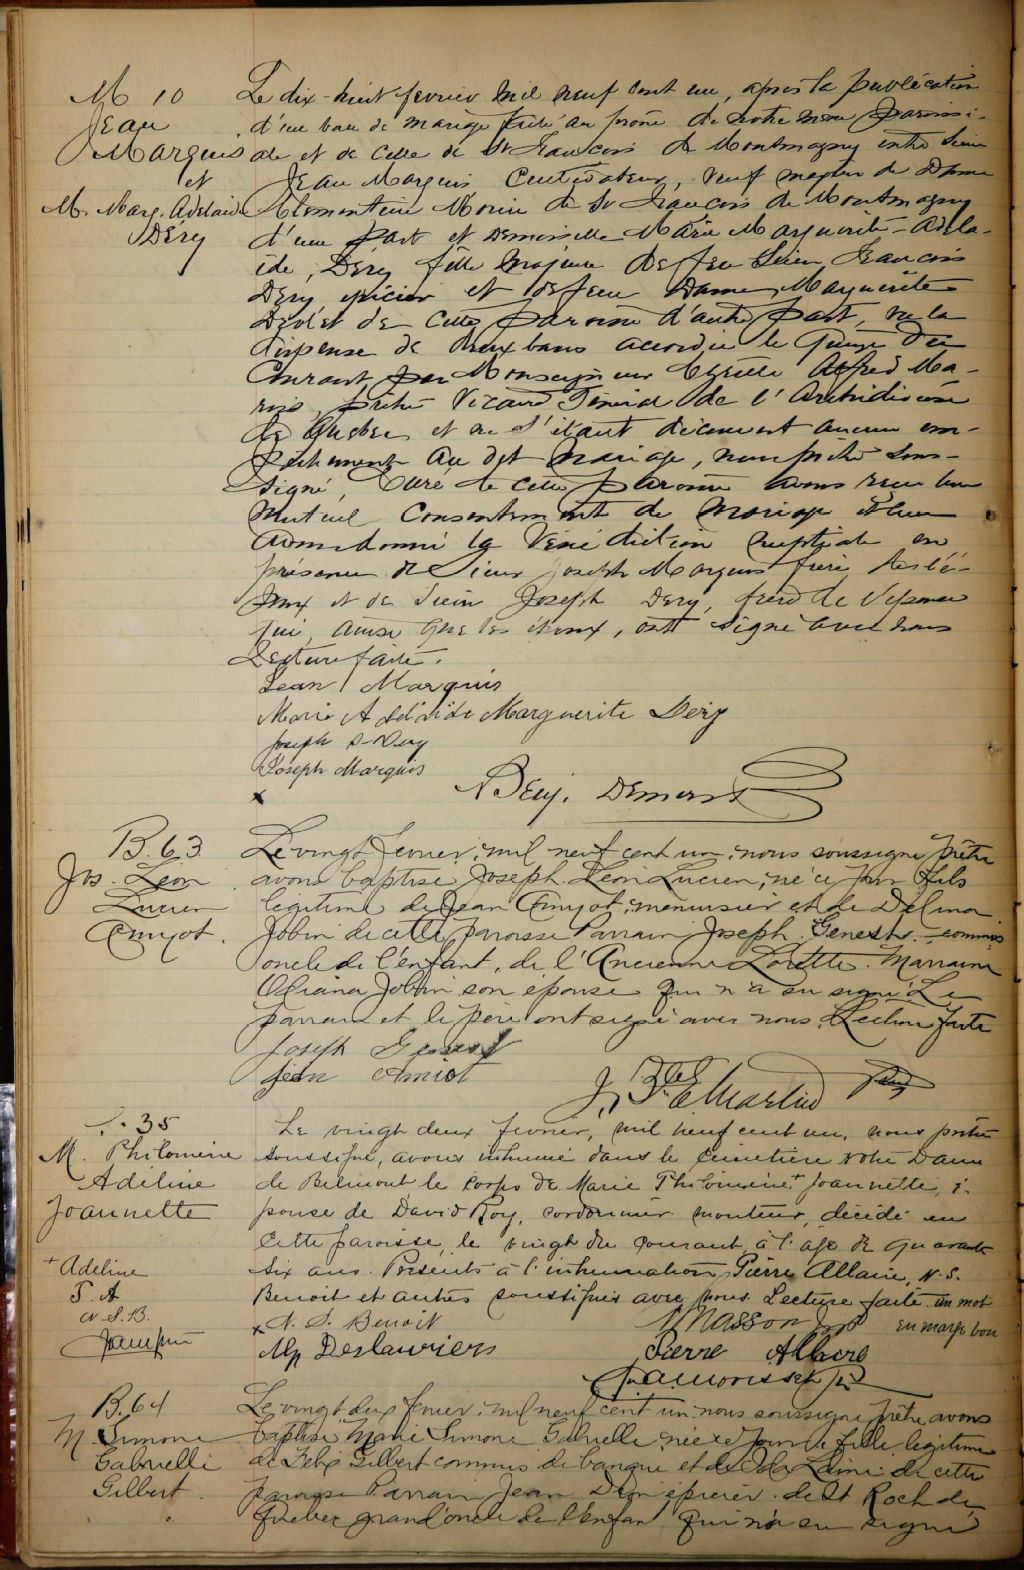 M 10
Jean
Marquis
et
M. Marg. Adelaide
Déry
Le dix-huit fevrier mil neuf cent un, après la publication
d'un ban de mariage faite au prône de notre messe paroissi-
ale et de celle de St François de Montmagny entre Sieur
Jean Marquis Cultivateur, veuf majeur de Dame
Clementine Morin de St François de Montmagny
d'une part et Demoiselle Marie Marguerite-Adela-
ide, Déry fille majeure de feu Sieur François
Dery épicier et de feue Dame Marguerite
de cette paroisse d'autre part, vu la
dispense de deux bans accordée le quinze du
Courant par Monseigneur Cyrille Alfred Ma-
rois, prêtre Vicaire Général de l'Archidiocèse
de Quebec et ne s'étant découvert aucun em-
pêchement au dit mariage, nous prêtre sous-
signé, Curé de cette paroisse avons reçu leur
mutuel Consentement de mariage et leur
avons donné la Bénédiction nuptiale en
présence de Sieur Joseph Marquis frère de l'é-
poux et de Sieur Joseph Dery, frère de l'épouse
qui, ainsi que les époux, ont signé avec nous
Lecture faite.
Jean Marquis
Marie Adélaïde Marguerite Déry
Joseph Dery
Joseph Marquis
x
Benj. Demers
B. 63
Jos. Léon
Lucien
Amyot.
Le vingt fevrier, mil neuf cent un, nous soussigné prêtre
avons baptisé Joseph Léon Lucien, né ce jour fils
legitime de Jean Amyot, menuisier et de Délina
Jobin de cette paroisse Parrain Joseph Genest commis
oncle de l'enfant, de l'Ancienne Lorette. Marraine
Jobin son épouse qui n'a su signer Le
parrain et le père ont signé avec nous. Lecture faite
Joseph Genest
Jean Amiot
S. 35
M. Philomène
Adéline
Joannette
+ Adeline
P. A
N. S. B.
Le vingt deux fevrier, mil neuf cent un, nous prêtre
soussigné, avons inhumé dans le cimetière Notre Dame
de Belmont le corps de Marie Philomène + Joannette, é-
pouse de David Roy, cordonnier monteur, décédé en
cette paroisse, le vingt du courant à l'âge de quarante
six ans. Présents à l'inhumation, Pierre Allaire, N. S.
Benoit et autres soussignés avec nous Lecture faite. un mot
en marge bon
x N. S. Benoit
Masson
Alp Deslauriers
Pierre Allaire
B. 64
M. Simone
Gabrielle
Gilbert.
Le vingt deux fevrier, mil neuf cent un nous soussigné prêtre avons
baptisé Marie Simone Gabrielle née ce jour fille legitime
de Felix Gilbert commis de banque et de de cette
paroisse Parrain Jean Dion épicier de St Roch de
Quebec grand'oncle de l'enfant qui n'a su signer